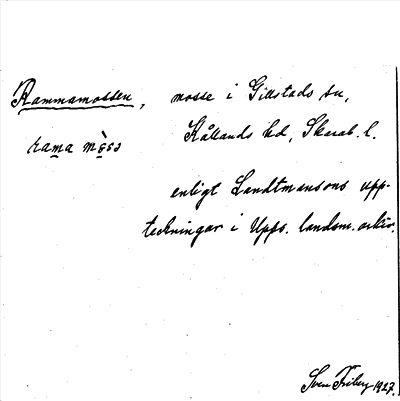 Rammamossen, mosse i Gillstads sn,
rama mòss Kållands hd, Skarab. l.
enligt Landtmansons upp-
teckningar i Upps. landsm. arkiv.
Sven Friberg 1927.